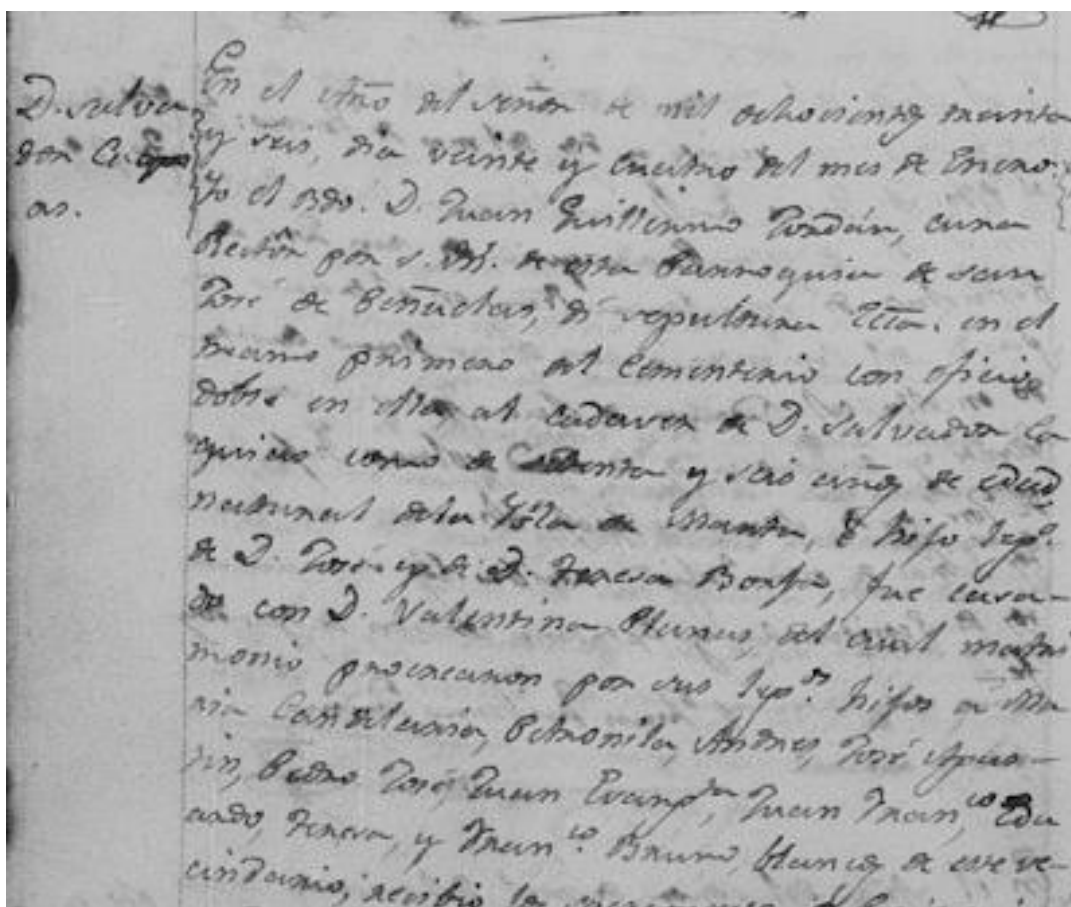 D. Salva
dor Caqui
as.
En el Año del Señor de mil ochocientos treinta
y seis, dia veinte y cuatro del mes de Enero:
Yo el Pdo. D. Juan Guillermo Jordán, cura
Rector por S. M. de esta Parroquia de San
José de Peñuelas, dí sepultura Ecca. en el
tramo primero del Cementerio con oficio
doble en ella, al cadaver de D. Salvador Ca
quias como de y seis años de edad,
natural de la de é hijo legº.
de D. José y de D. Teresa fue casa-
do con D. Valentina del cual matri
monio procrearon por sus legºs. hijos a Ma
ria Candelaria, Petronila, Andres, José
Pedro José, Juan Evangta, Juan Franco, Edu
ardo, Teresa, y Franco. Bruno, blancos de este ve-
cindario; recibio los